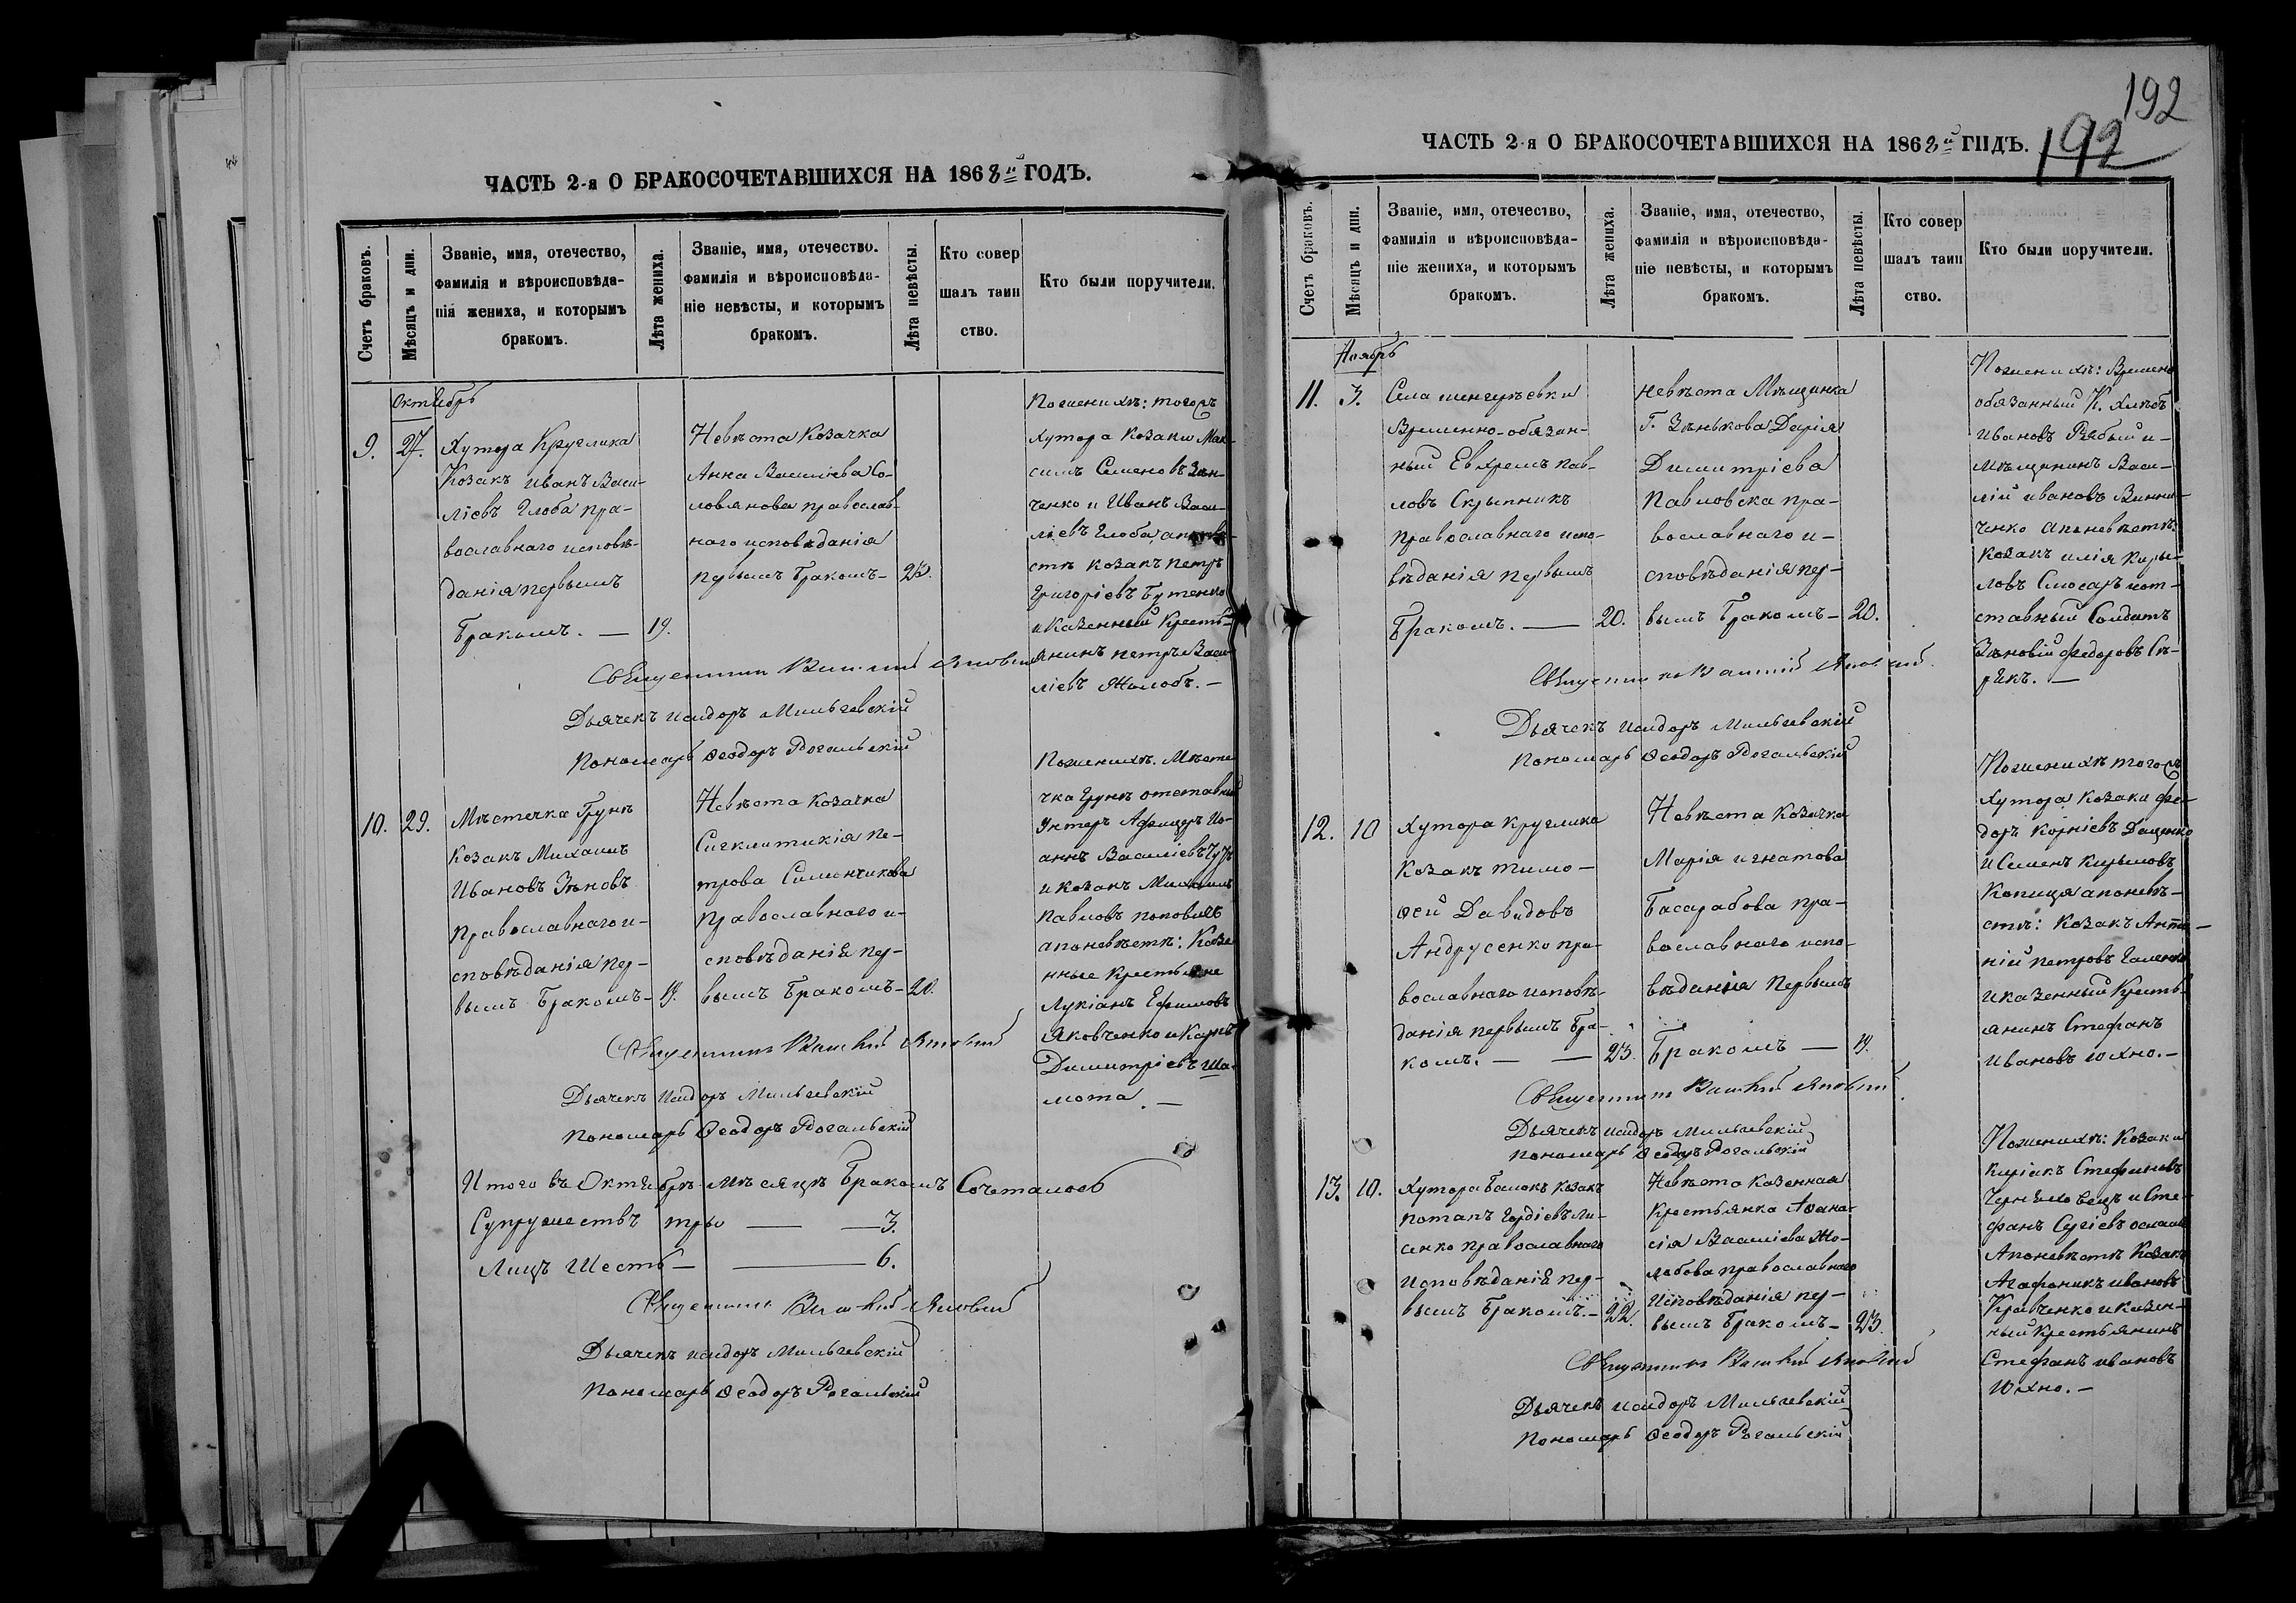 ЧАСТЬ 2-я О БРАКОСОЧЕТАВШИХСЯ НА 1868й ГОДЪ.
Счетъ браковъ.
Мѣсяцъ и дни.
Званіе, имя, отечество,
фамилія и вѣроисповѣда-
нія жениха, и которымъ
бракомъ.
Лѣта жениха.
Званіе, имя, отечество.
фамилія и вѣроисповѣда-
ніе невѣсты, и которымъ
бракомъ.
Лѣта невѣсты.
Кто совер
шалъ таин
ство.
Кто были поручители.
Октябрь
9. 27.
Хутора Круглика
Козакъ Иванъ Васи-
ліевъ Глоба пра-
вославнаго исповѣ-
данія первымъ
Бракомъ. — 19.
Невѣста Козачка
Анна Василіева Со-
ловянова православ-
наго исповѣданія
первымъ Бракомъ — 23.
Поженихѣ: тогожъ
Хутора Козаки Мак-
симъ Семеновъ Зѣн-
ченко и Иванъ Васи-
ліевъ Глоба, апоневѣ-
стѣ козакъ Петръ
Григоріевъ Бутенко
и Казенный Кресть-
янинъ Петръ Васи-
ліевъ Жолобъ. —
Священникъ Василій Яновскій
Дьячекъ Исидоръ Мильчевскій
Пономарь Ѳеодоръ Рогальскій
10. 29.
Мѣстечка Груни
Козакъ Михаилъ
Ивановъ Зѣновъ
Православнаго и-
сповѣданія пер-
вымъ Бракомъ — 19.
Невѣста Козачка
Сигклитикія Пе-
трова Симончикова
Православнаго и-
сповѣданія пер-
вымъ Бракомъ — 20.
Поженихѣ. Мѣсте
чка Груни отставный
Унтеръ Афицеръ Іо-
аннъ Василіевъ
и козакъ Михаилъ
Павловъ Поповичъ
апоневѣстѣ: Казе
нные Крестьяне
Лукіанъ Ефимовъ
Яковченко и Карпъ
Димитріевъ Ша-
мота. —
Священникъ Василій Яновскій
Дьячекъ Исидоръ Мильчевскій
Пономарь Ѳеодоръ Рогальскій
Итого въ Октябрѣ мѣсяцѣ Бракомъ Сочеталось
Супружествъ три — — 3.
Лицъ Шесть — — 6.
Священникъ Василій Яновскій
Дьячекъ Исидоръ Мильчевскій
Пономарь Ѳеодоръ Рогальскій
192
192
ЧАСТЬ 2-я О БРАКОСОЧЕТАВШИХСЯ НА 1868й ГПДЪ.
Счетъ браковъ.
Мѣсяцъ и дни.
Званіе, имя, отечество,
фамилія и вѣроисповѣда-
ніе жениха, и которымъ
бракомъ.
Лѣта жениха.
Званіе, имя, отечество,
фамилія и вѣроисповѣда-
ніе невѣсты, и которымъ
бракомъ.
Лѣта невѣсты.
Кто совер
шалъ таин
ство.
Кто были поручители.
Ноябрь
11. 3.
Села
Временно-обязан-
ный Евхремъ Пав-
ловъ Скрыпникъ
Православнаго испо-
вѣданія первымъ
Бракомъ. — 20.
Невѣста Мѣщанка
Г. Зѣнькова Дарія
Димитріева
Павловска пра-
вославнаго и-
сповѣданія пер-
вымъ Бракомъ — 20.
Поженихѣ: Времено
обязанный К. Хлѣбъ
Ивановъ Рябый и-
Мѣщанинъ Васи-
лій Ивановъ Винни-
ченко апоневѣстѣ:
Козакъ Илія Кири-
ловъ Слюсарь иот-
ставный Солдатъ
Зѣновій Федоровъ Сѣ-
рикъ. —
Священникъ Василій Яновскій
Дьячекъ Исидоръ Мильчевскій
Пономарь Ѳеодоръ Рогальскій
12. 10
Хутора Круглика
Козакъ Тимо-
ѳей Давидовъ
Андрусенко пра-
вославнаго исповѣ-
данія первымъ Бра-
комъ. — — 23.
Невѣста Козачка
Марія Игнатова
Басарабова пра-
вославнаго испо-
вѣданія Первымъ
Бракомъ — 19.
Поженихѣ тогожъ
Хутора Козаки Фе-
доръ Корніевъ Даценко
и Семенъ Кириловъ
Копиця апоневѣ-
стѣ: Козакъ Анто-
ній Петровъ Галенко
и казенный Кресть-
янинъ Стефанъ
Ивановъ Юхно. —
Священникъ Василій Яновскій
Дьячекъ Исидоръ Мильчевскій
Пономарь Ѳеодоръ Рогальскій
13. 10.
Хутора Балокъ Козакъ
Потапъ Гордіевъ Ли-
сенко православнаго
Исповѣданія пер-
вымъ Бракомъ. — 22.
Невѣста Казенная
Крестьянка Аѳана-
сія Василіева Жо-
лобова православнаго
Исповѣданія пер-
вымъ Бракомъ — 23.
Поженихѣ: Козаки
Киріакъ Стефановъ
и Сте-
фанъ Сергіевъ
Апоневѣстѣ Козакъ
Агафоникъ Ивановъ
Кравченко и казен-
ный крестьянинъ
Стефанъ Ивановъ
Юхно. —
Священникъ Василій Яновскій
Дьячекъ Исидоръ Мильчевскій
Пономарь Ѳеодоръ Рогальскій